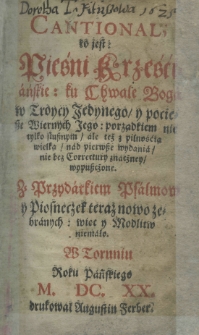 CANTIONAL,
to jest:
Pieśni Krześci
áńskie: ku Chwale Bogá
w Troycy Jedynego/ y pocie
ße Wiernych Jego: porządkiem nie
tylko słußnym/ ále też z pilnością
wielką/ nád pierwße wydánia/
nie bez Correctury znáczney/
wypußczone.
Z Przydatkiem Psalmow
y Piosneczek teraz nowo ze-
bránych: więc y Modlitw
niemáło.
W Toruniu
Roku Páńskiego
M. DC. XX.
drukował Augustin Ferber.